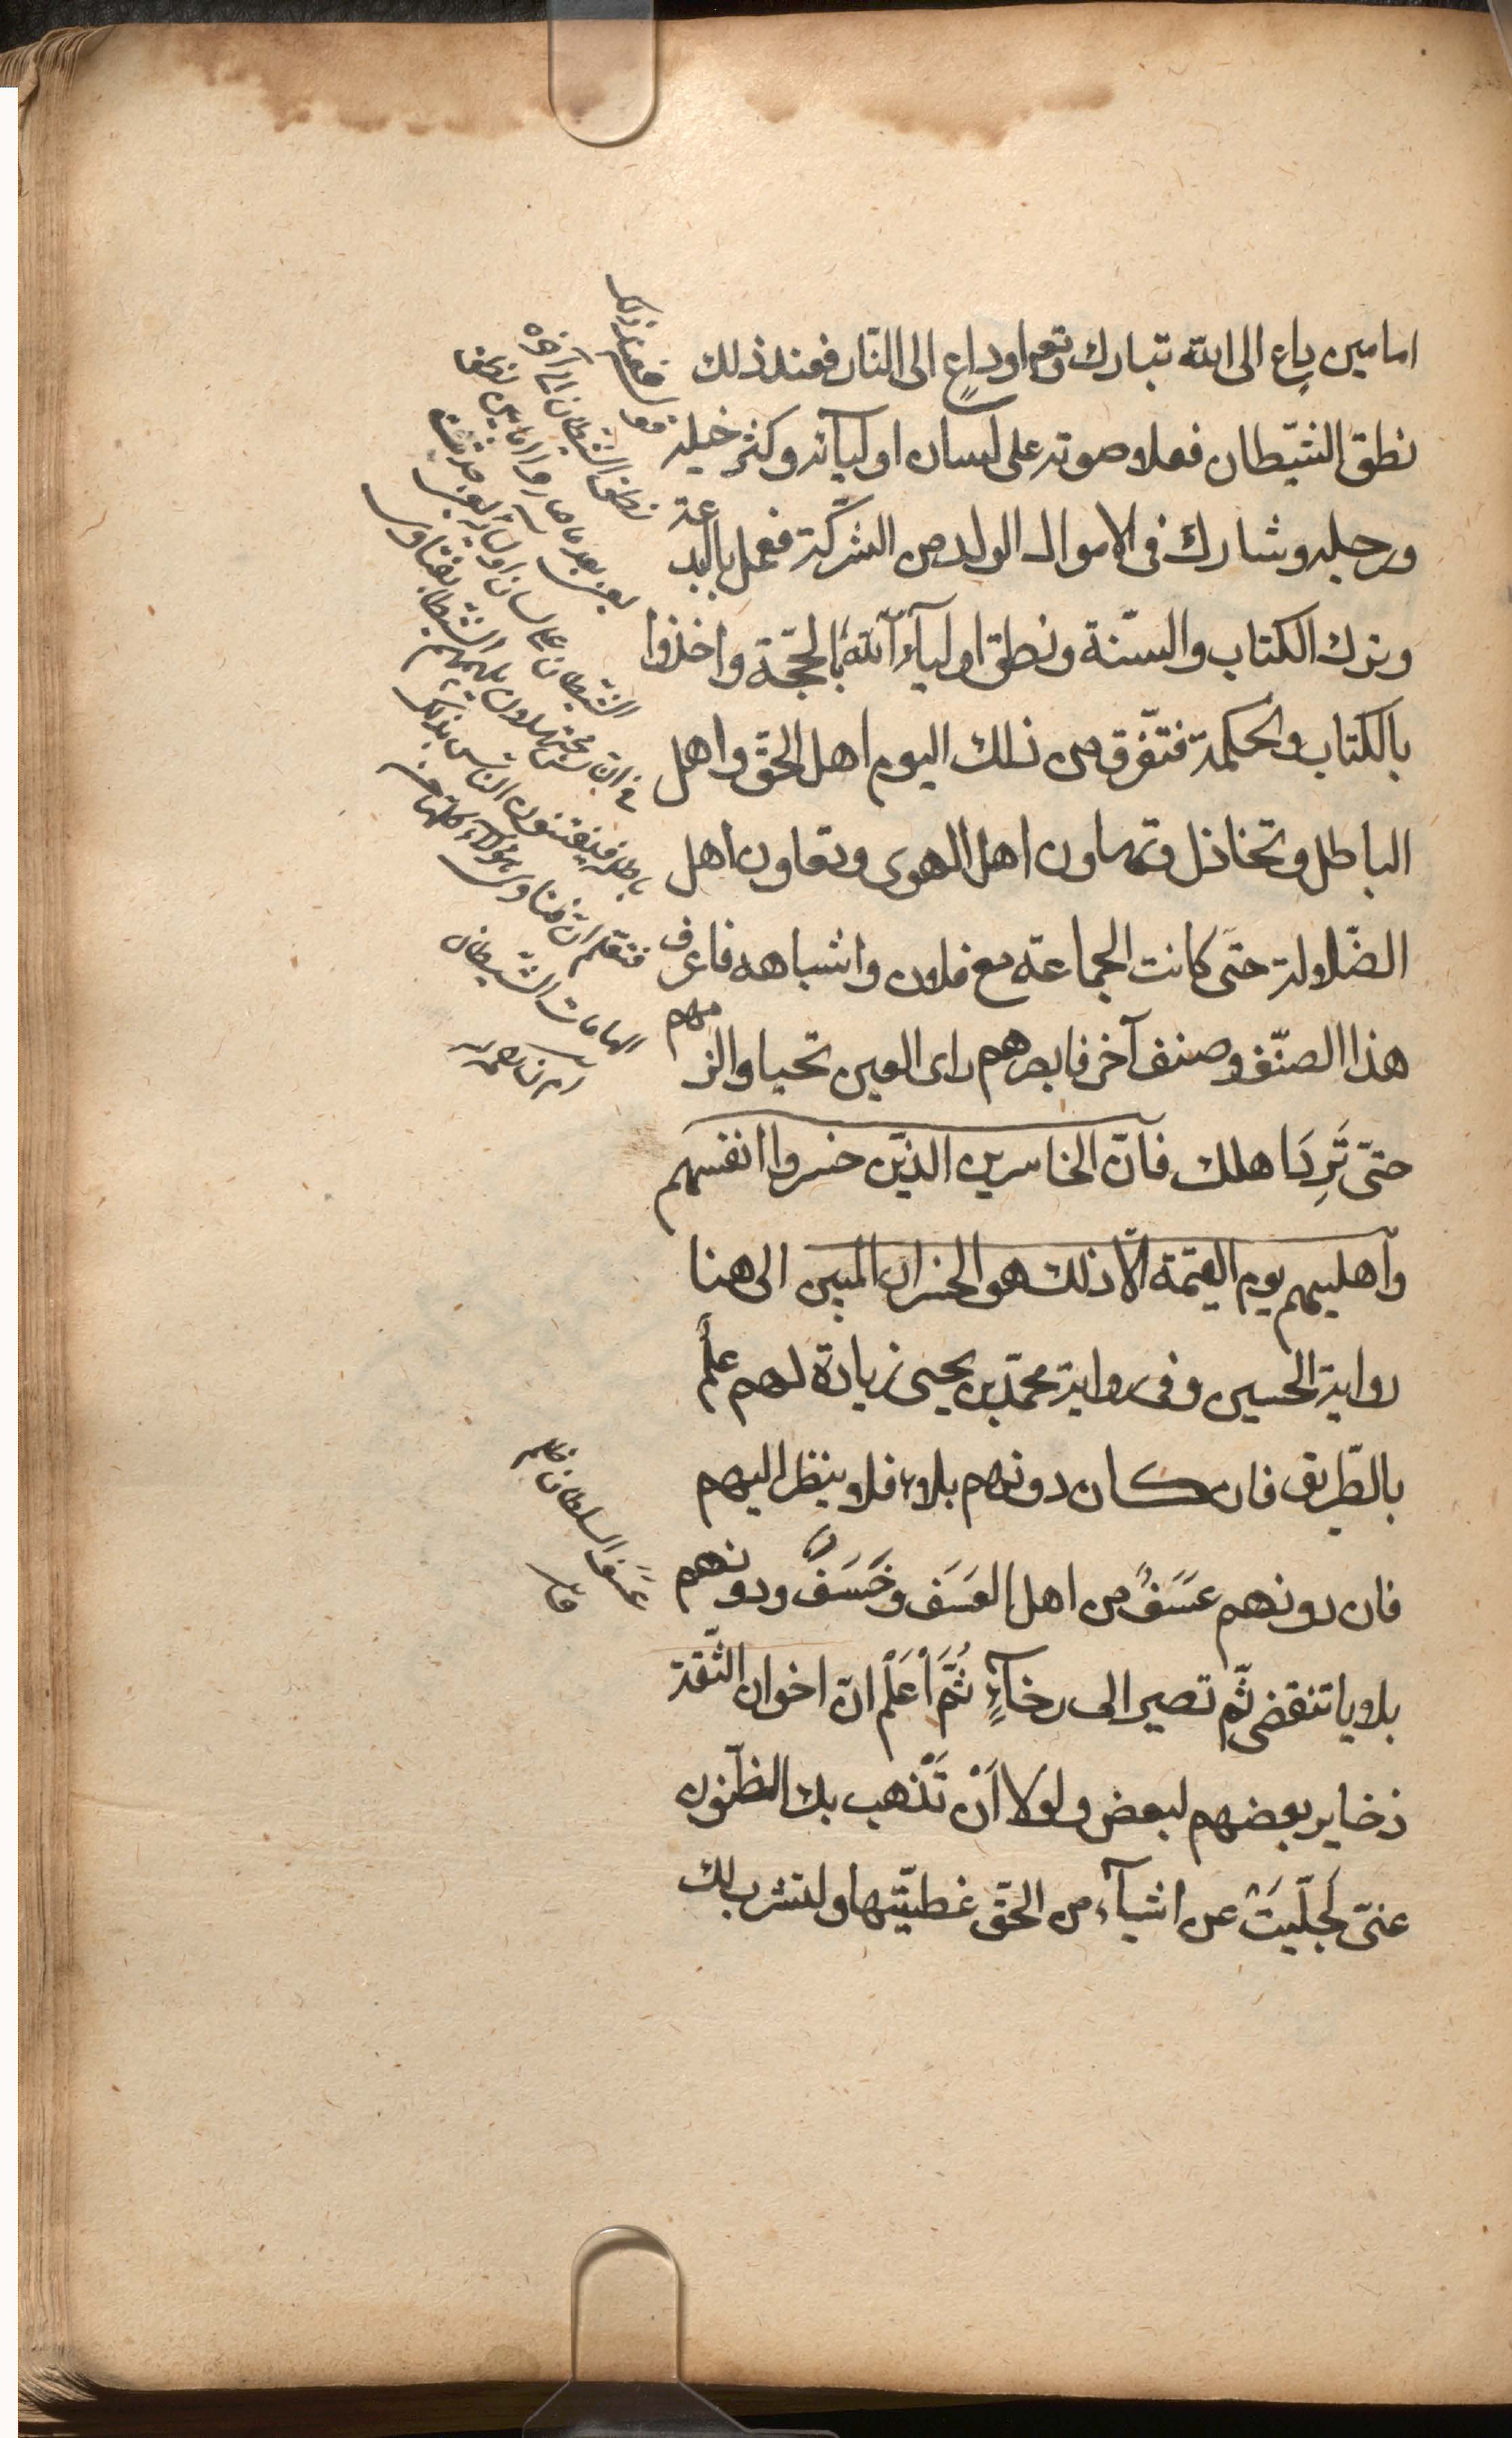 اما مين داع الى الله تبارك وتع اوداعٍ الى النّار فعند ذلك
نطق الشيّطان فعلا صوته على لسان اوليآئه وكثر خيله
ورجله وشارك فى الاموال الولد من اشركة فعمل بالبدعة
وترك الكتاب والسنّة ونطق اوليآء الله بالحجّة واخذوا
بالكتاب والحكمة فتفّرق من ذلك اليوم اهل الحقّ واهل
الباطل وتخاذل وتهاون اهل الهوى وتعاون اهل
الضّلالة حتى كانت الجماعة مع فلان واشباهه فاعرف
هذا الصنّف وصنف آخر فابصرهم راى العين تحيا والزمهم
حتىّ تَرِدَ اهلك فآنّ الخاسرين الذيّن خسروا انفسهم
وآهليهم يوم القيمة الّا ذلك هو الخسران المبين الى هنا
رواية الحسين وفى رواية محمّد بن يحيى زيادة لهم علمٌ
بالطّريق فان كان دونهم بلاء فلا ينظر اليهم
فان دونهم عَسَفٌ من اهل العَسَف وخَسَفٌ ودونهم
بلايا تنقضى ثّم تصير الى رخآءٍ ثُمَّ اَعْلَمْ انّ اخوان الثّقة
ذخاير بعضهم لبعض ولولا اَنْ تَذْهب بك الظّنون
عنىّ لَجلّيَتُ عن اشيآء من الحقّ غطيّتها ولنشرت لك
فعند ذلك
نطق الشيّطان الى آخره
الشيّطان على لسان اوليائه
فتعلم انّ فتاوى هؤلآء كلّها من
الهامات الشيّطان
عَسَف السلطان ظلم